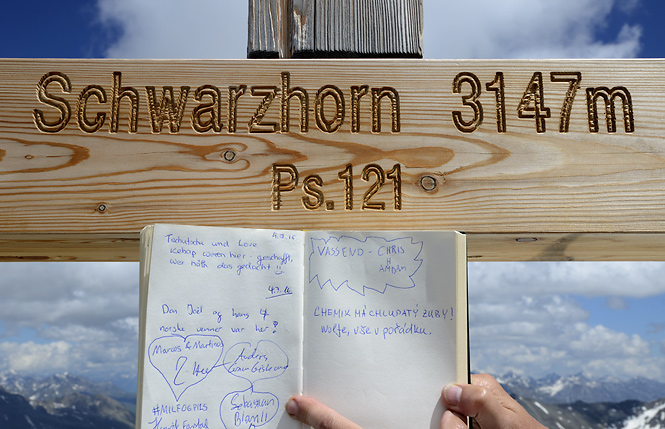 Schwarzhorn 3147m
Ps.121
4.7.16
Tschutschu und Love
Kebap waren hier - geschafft,
wer hätt das gedacht!!
4.7.16
Dan Joël og hans 4
norske venner var her!
Marcos & Martina
Anders
#MILFOGPIKS
Sebastian
VASSEVO - CHRIS
CHEMIK MÁ CHLUPATÝ ZUBY!
Wolfe, vše v pořádku.